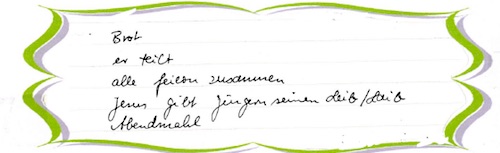 Brot
er teilt
alle feiern zusammen
Jesus gibt Jüngern seinen Leib/Leib
Abendmahl